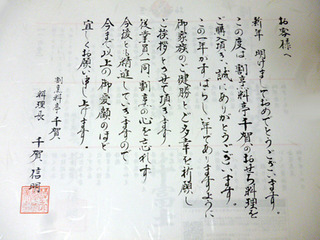 お客様へ
新年 明けましておめでとうございます。
この度は割烹料亭千賀のおせち料理を
ご購入頂き誠にありがとうございます。
この一年がすばらしい年でありますように
御家族のご健勝とご多幸を祈願し
ご挨拶とさせて頂きます。
従業員一同割烹の心を忘れず
今後とも精進していきますので
今まで以上の御愛顧のほど
宜しくお願い申し上げます。
割烹料亭 千賀
料理長 千賀 信明